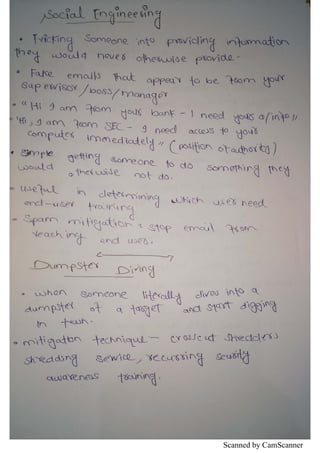 Social Engineering
• Tricking Someone into providing information
they would never otherwise provide.
• Fake emails that appear to be from your
supervisor/boss/manager
• "Hi I am from your bank - I need your a/c info"
"Hi, I am from SEC - I need access to your
computer immediately" (position of authority)
• Simple getting someone to do something they
would otherwise not do.
- useful in determining which users need
end-user training
- Spam mitigation: stop email from
reaching end user.
Dumpster Diving
• when someone literally dives into a
dumpster of a target and start digging
in trash.
• mitigation technique - crosscut shredders
shredding service, recurring security
awareness training.
Scanned by CamScanner